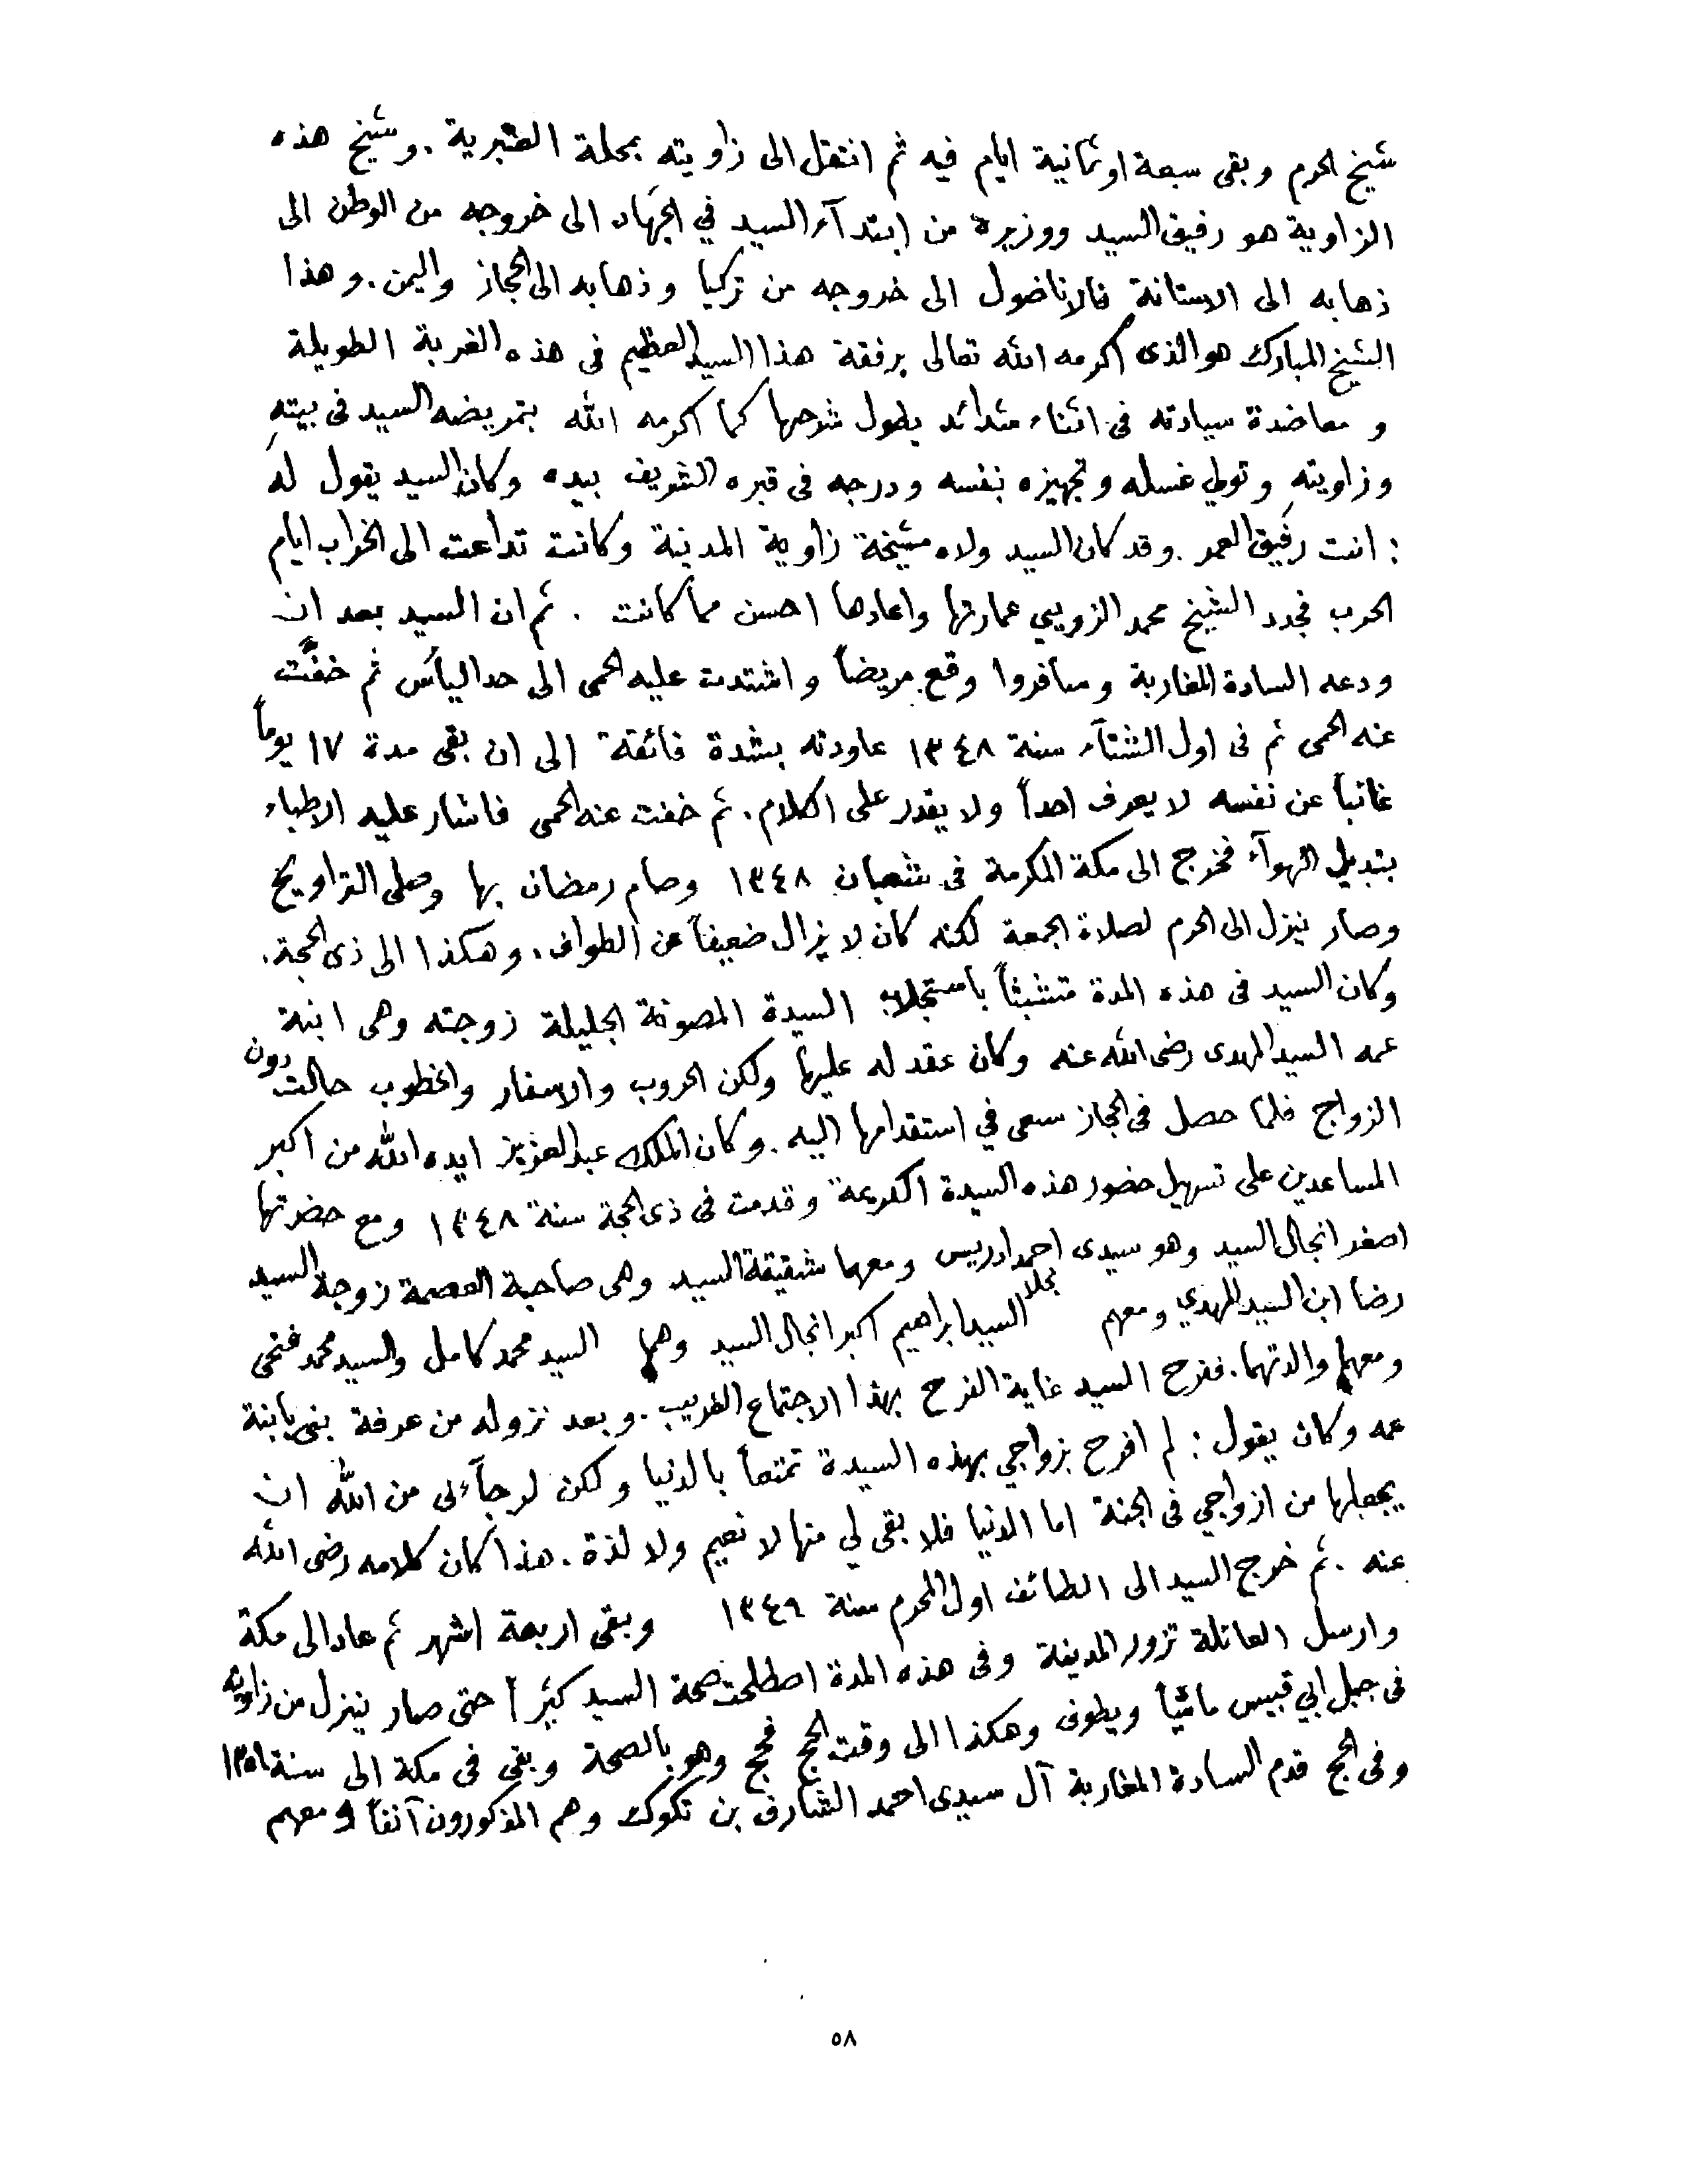 شيخ الحرم وبقى سبعة او ثمانية ايام فيه ثم انتقل الى زاويته بمحلة العنبرية . وشيخ هذه
الزاوية هو رفيق السيد ووزيره من ابتدآء السيد في الجهاد الى خروجه من الوطن الى
ذهابه الى الاستانة فالاناضول الى خروجه من تركيا وذهابه الى الحجاز واليمن . وهذا
الشيخ المبارك هو الذى اكرمه الله تعالى برفقة هذا السيد العظيم فى هذه الغربة الطويلة
و معاضدة سيادته فى اثناء شدائد يطول شرحها كما اكرمه الله بتمريضه السيد فى بيته
وزاويته وتولي غسله وتجهيزه بنفسه ودرجه فى قبره الشريف بيده وكان السيد يقول له
: انت رفيق العمر . وقد كان السيد ولاه مشيخة زاوية المدينة وكانت تداعت الى الخراب ايام
الحرب فجدد الشيخ محمد الزويي عمارتها واعادها احسن مما كانت . ثم ان السيد بعد ان
ودعه السادة المغاربة وسافروا وقع مريضاً واشتدت عليه الحمى الى حد اليأس ثم خفّت
عنه الحمى ثم فى اول الشتآء سنة ١٣٤٨ عاودته بشدة فائقة الى ان بقى مدة ١٧ يوماً
غائباً عن نفسه لا يعرف احداً ولا يقدر على الكلام . ثم خفت عنه الحمى فاشار عليه الاطباء
بتبديل الهوآء فخرج الى مكة المكرمة فى شعبان ١٣٤٨ وصام رمضان بها وصلى التراويح
وصار ينزل الى الحرم لصلاة الجمعة لكنه كان لا يزال ضعيفاً عن الطواف . وهكذا الى ذى الحجة .
وكان السيد فى هذه المدة متشبثاً باستجلاب السيدة المصونة الجليلة زوجته وهى ابنة
عمه السيد المهدى رضى الله عنه وكان عقد له عليها ولكن الحروب والاسفار والخطوب حالت دون
الزواج فلما حصل فى الحجاز سعى في استقدامها اليه . وكان الملك عبد العزيز ايده الله من اكبر
المساعدين على تسهيل حضور هذه السيدة الكريمة وقدمت فى ذى الحجة سنة ١٣٤٨ ومع حضرتها
اصغر انجال السيد وهو سيدى احمد ادريس ومعهما شقيقة السيد وهى صاحبة العصمة زوجة السيد
رضا ابن السيد المهدي ومعهم نجلا السيد ابراهيم اكبر انجال السيد وهما السيد محمد كامل والسيد محمد فتحى
ومعهما والدتهما . ففرح السيد غاية الفرح بهذا الاجتماع الغريب . وبعد نزوله من عرفة بنى بابنة
عمه وكان يقول : لم افرح بزواجي بهذه السيدة تمتعاً بالدنيا ولكن لرجآءى من الله ان
يجعلها من ازواجي فى الجنة اما الدنيا فلا بقى لي منها لا نعيم ولا لذة . هذا كان كلامه رضى الله
عنه . ثم خرج السيد الى الطائف اول المحرم سنة ١٣٤٩ وبقى اربعة اشهر ثم عاد الى مكة
وارسل العائلة تزور المدينة وفى هذه المدة اصطلحت صحة السيد كثيراً حتى صار ينزل من زاويته
فى جبل ابي قبيس ماشياً ويطوف وهكذا الى وقت الحج فحج وهو بالصحة وبقى فى مكة الى سنة ١٣٥١
وفى الحج قدم السادة المغاربة آل سيدى احمد الشارف بن تكوك وهم المذكورون آنفاً ومعهم
٥٨